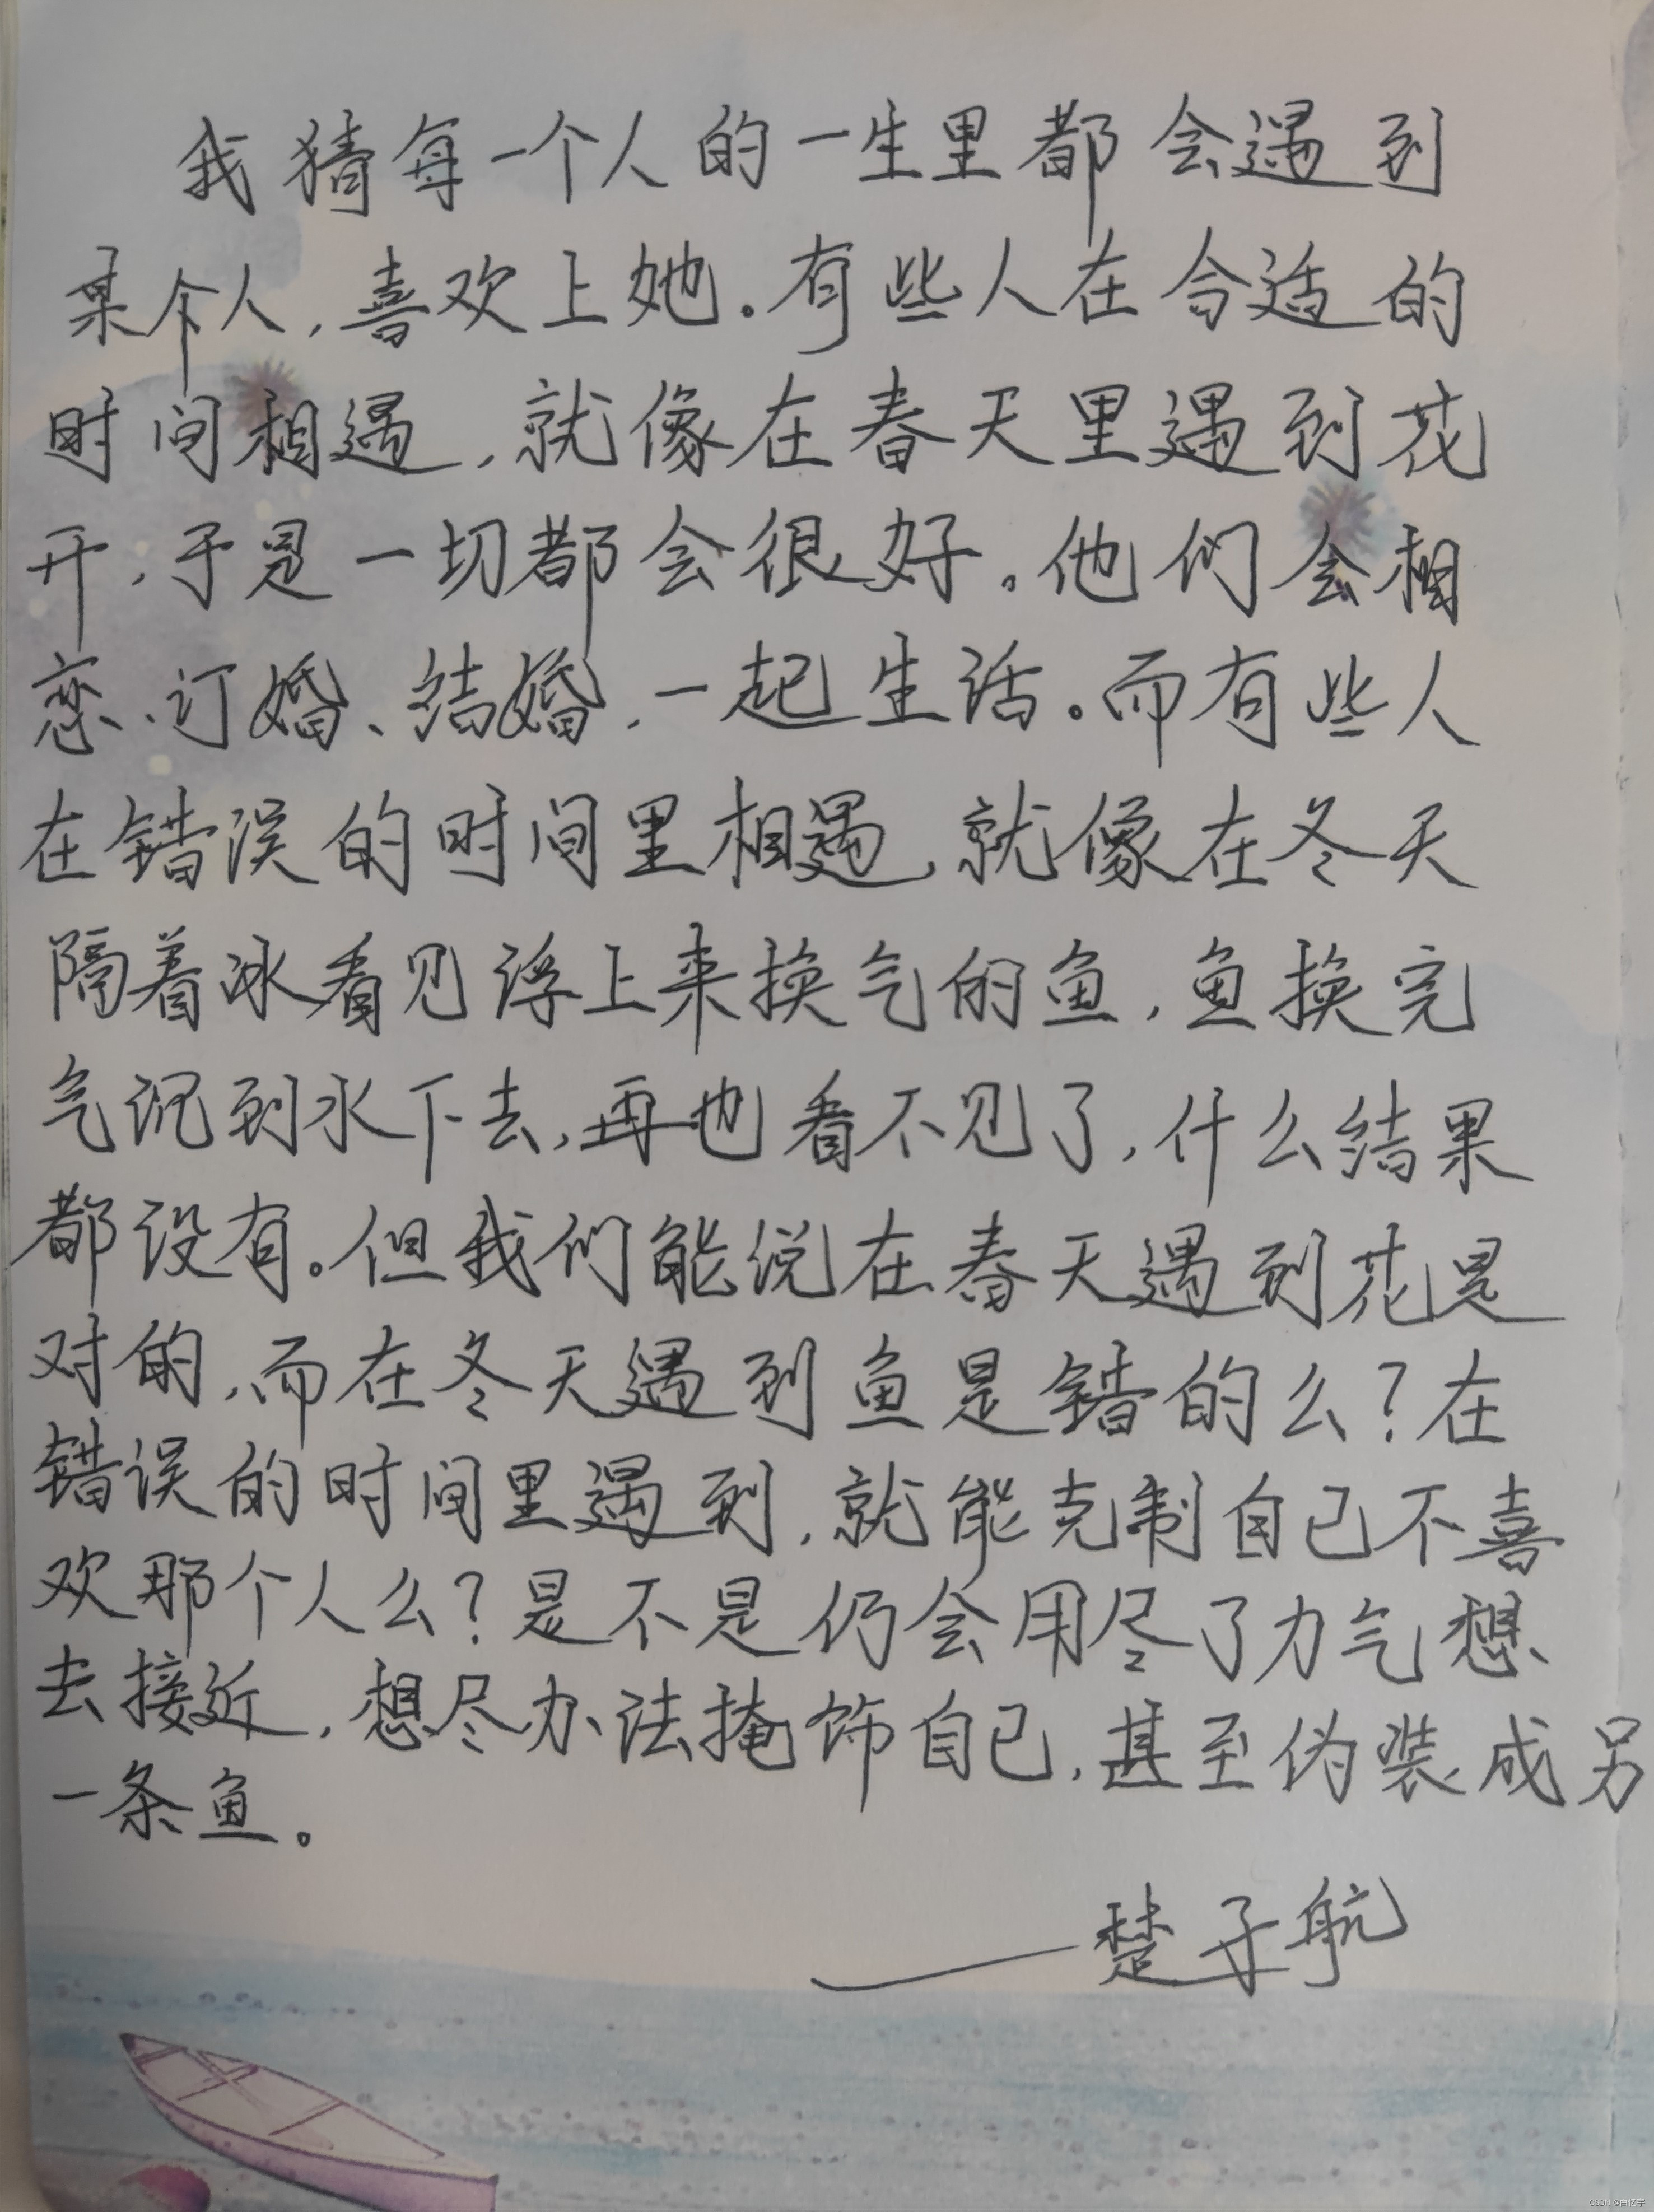 我猜每一个人的一生里都会遇到
某个人，喜欢上她。有些人在合适的
时间相遇，就像在春天里遇到花
开，于是一切都会很好。他们会相
恋、订婚、结婚，一起生活。而有些人
在错误的时间里相遇，就像在冬天
隔着冰看见浮上来换气的鱼，鱼换完
气沉到水下去，再也看不见了，什么结果
都没有。但我们能说在春天遇到花是
对的，而在冬天遇到鱼是错的么？在
错误的时间里遇到，就能克制自己不喜
欢那个人么？是不是仍会用尽了力气想
去接近，想尽办法掩饰自己，甚至伪装成另
一条鱼。
——楚子航